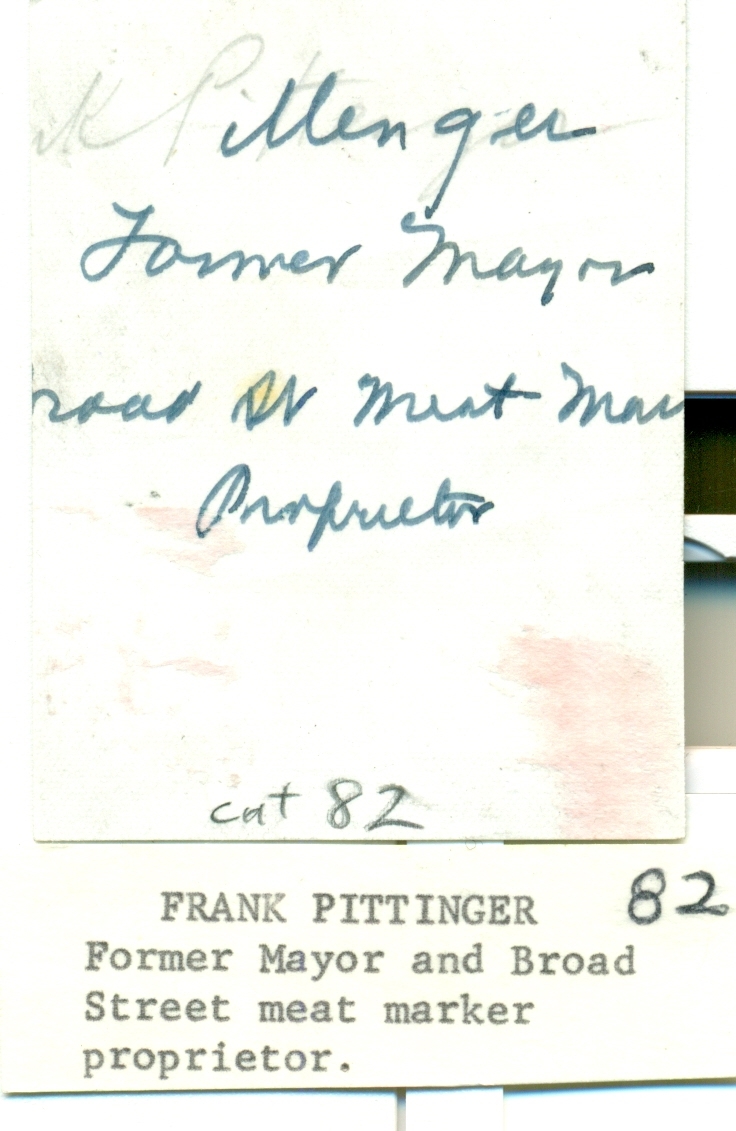 k Pittenger
Former Mayor
road St Meat Mar
Proprietor
cat 82
FRANK PITTINGER 82
Former Mayor and Broad
Street meat marker
proprietor.